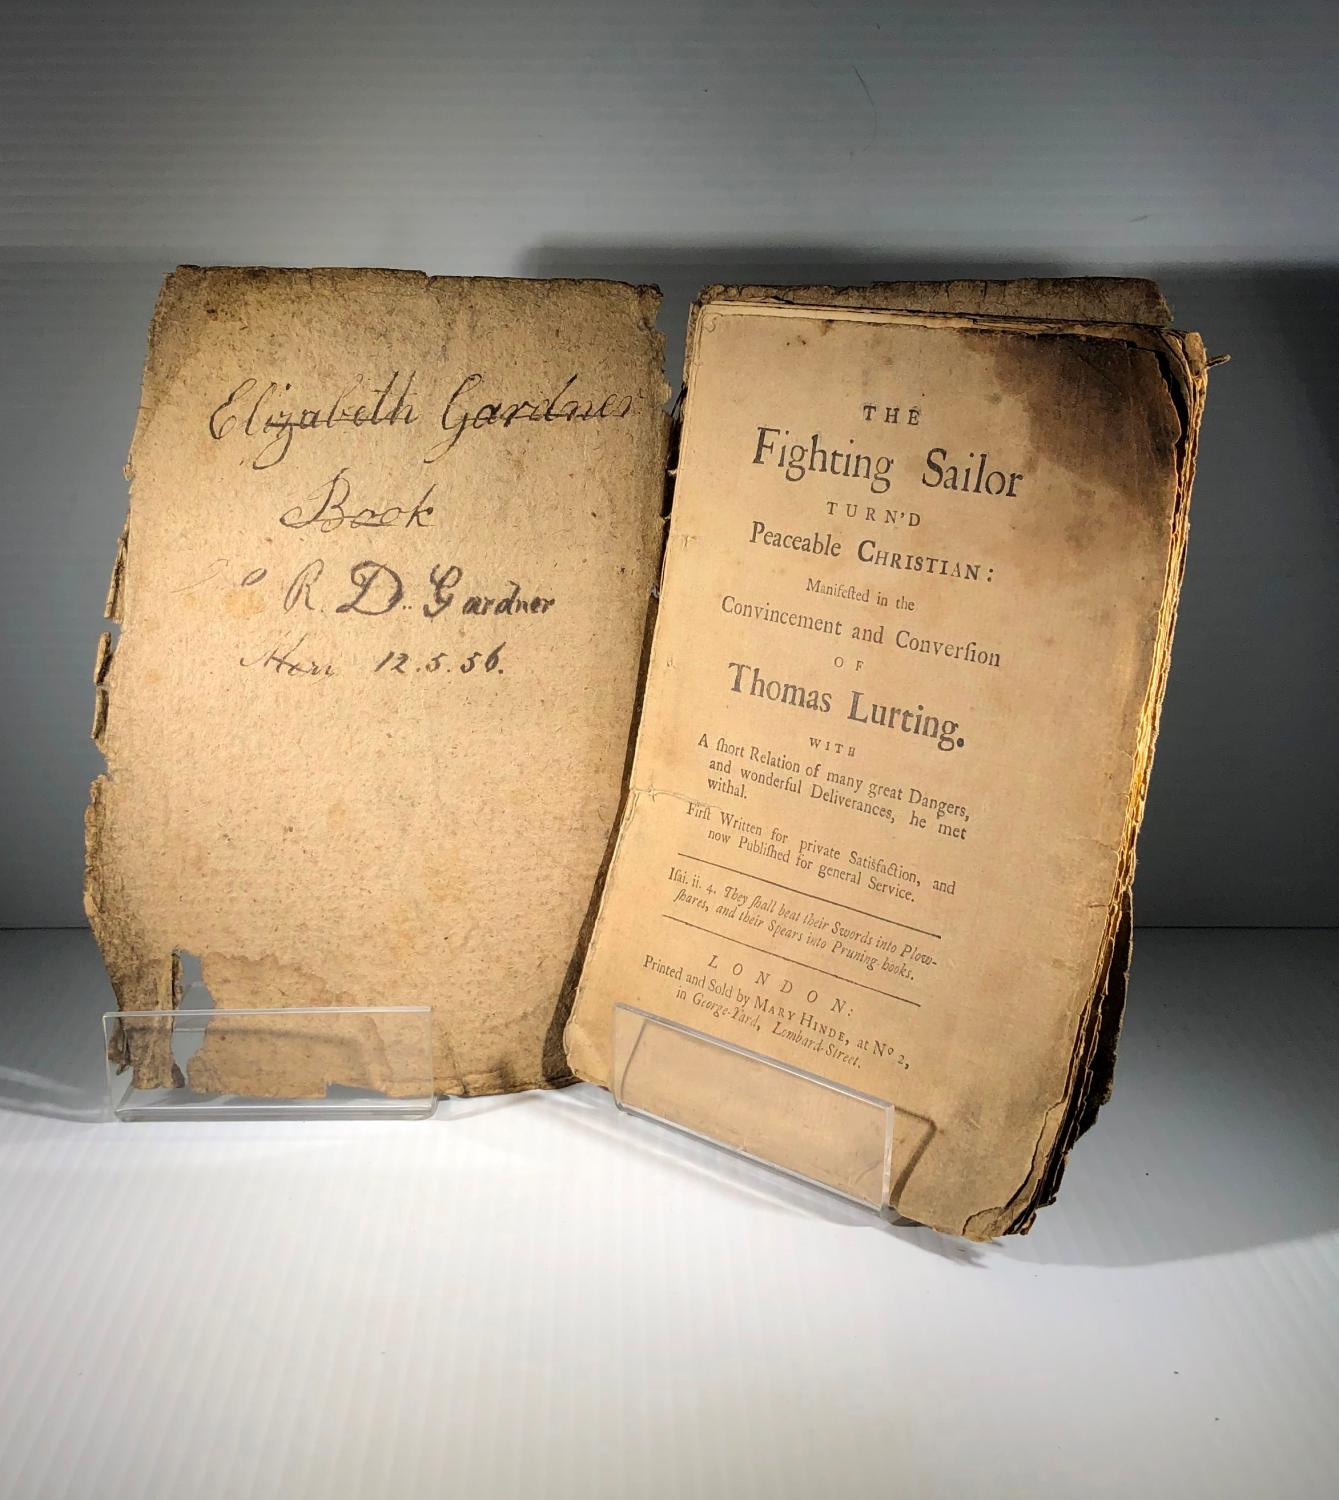 Elizabeth Gardner
Book
R. D. Gardner
12.5.56.
THE
Fighting Sailor
TURN'D
Peaceable CHRISTIAN:
Manifeſted in the
Convincement and Converſion
OF
Thomas Lurting.
WITH
A ſhort Relation of many great Dangers,
and wonderful Deliverances, he met
withal.
Firſt Written for private Satisfaction, and
now Publiſhed for general Service.
Iſai. ii. 4. They ſhall beat their Swords into Plow-
ſhares, and their Spears into Pruning-hooks.
LONDON:
Printed and Sold by MARY HINDE, at Nº 2,
in George-Yard, Lombard-Street.